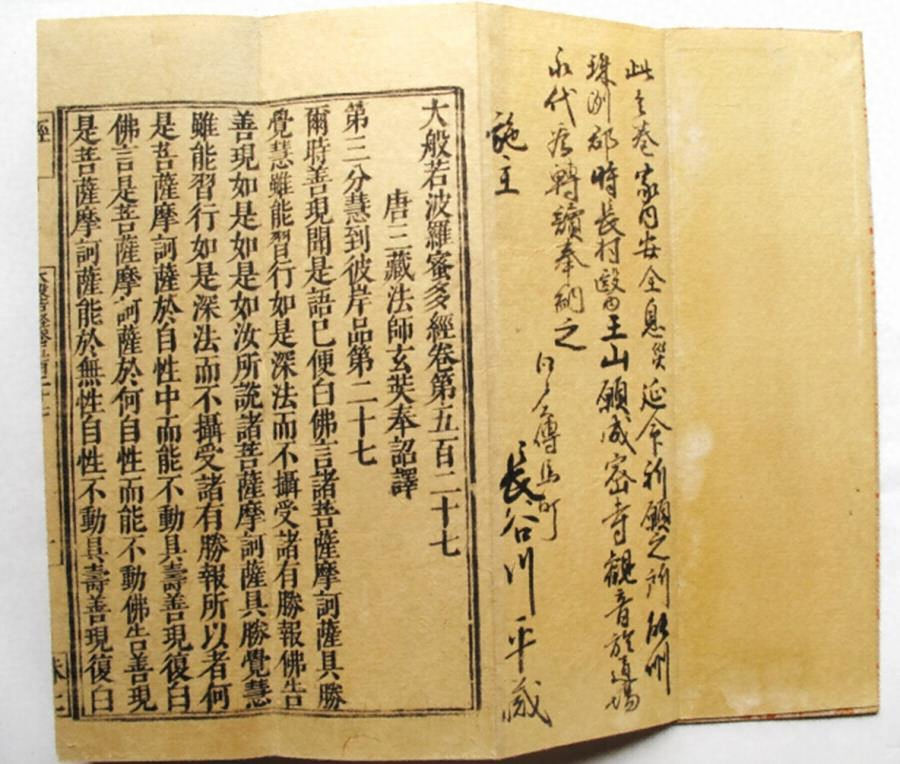 此之巻家内安全息災延命祈願之所 能州
珠洲郡時長村醫王山願成密寺観音於道場
永代為轉讀奉納之
傳馬町
施主
長谷川平蔵
大般若波羅蜜多經卷第五百二十七
唐三藏法師玄奘奉詔譯
第三分慧到彼岸品第二十七
爾時善現聞是語已便白佛言諸菩薩摩訶薩具勝
覺慧雖能習行如是深法而不攝受諸有勝報佛告
善現如是如是如汝所説諸菩薩摩訶薩具勝覺慧
雖能習行如是深法而不攝受諸有勝報所以者何
是菩薩摩訶薩於自性中而能不動具壽善現復白
佛言是菩薩摩訶薩於何自性而能不動佛告善現
是菩薩摩訶薩能於無性自性不動具壽善現復白